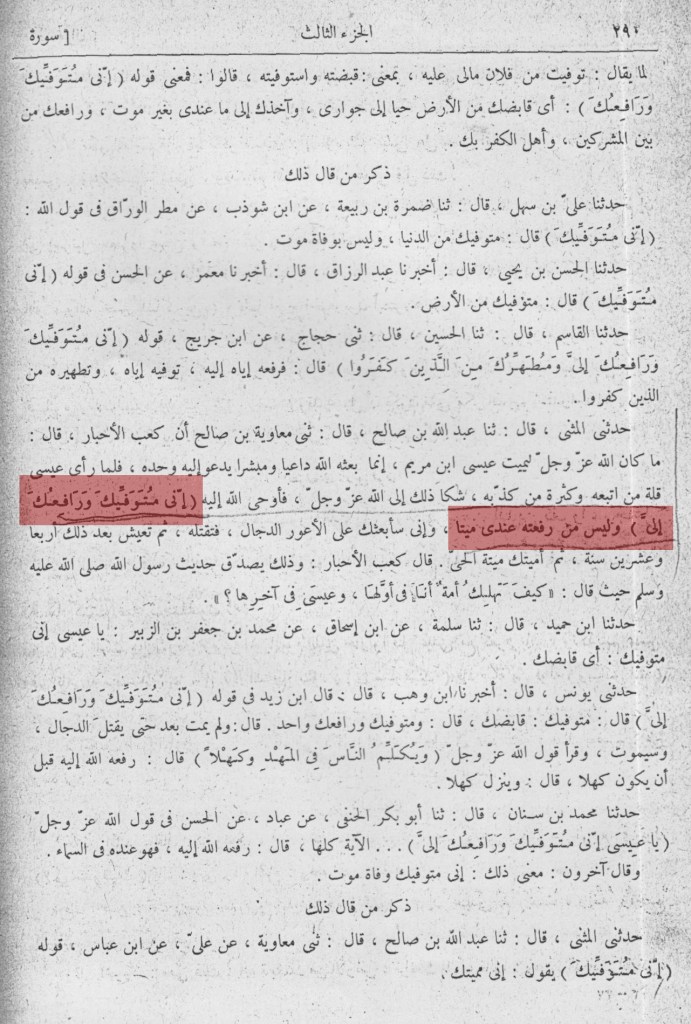 ٢٩٠ الجزء الثالث [ سورة
لما يقال : توفيت من فلان مالى عليه ، بمعنى : قبضته واستوفيته ، قالوا : فمعنى قوله ( إنّى مُتَوَفِّيكَ
وَرَافِعُكَ ) : أى قابضك من الأرض حيا إلى جوارى ، وآخذك إلى ما عندى بغير موت ، ورافعك من
بين المشركين ، وأهل الكفر بك .
ذكر من قال ذلك
حدثنا علىّ بن سهل ، قال : ثنا ضمرة بن ربيعة ، عن ابن شوذب ، عن مطر الورّاق فى قول الله :
( إنّى مُتَوَفِّيكَ ) قال : متوفيك من الدنيا ، وليس بوفاة موت .
حدثنا الحسن بن يحيى ، قال : أخبرنا عبد الرزاق ، قال : أخبرنا معمر ، عن الحسن فى قوله ( إنّى
مُتَوَفِّيكَ ) قال : متوفيك من الأرض .
حدثنا القاسم ، قال : ثنا الحسين ، قال : ثنى حجاج ، عن ابن جريج ، قوله ( إنّى مُتَوَفِّيكَ
وَرَافِعُكَ إلىَّ وَمُطَهِّرُكَ مِنَ الَّذِينَ كَفَرُوا ) قال : فرفعه إياه إليه ، توفيه إياه ، وتطهيره من
الذين كفروا .
حدثنى المثنى ، قال : ثنا عبد الله بن صالح ، قال : ثنى معاوية بن صالح أن كعب الأحبار ، قال :
ما كان الله عزّ وجلّ ليميت عيسى ابن مريم ، إنما بعثه الله داعيا ومبشرا يدعو إليه وحده ، فلما رأى عيسى
قلة من اتبعه وكثرة من كذّبه ، شكا ذلك إلى الله عزّ وجلّ ، فأوحى الله إليه ( إنّى مُتَوَفِّيكَ وَرَافِعُكَ
إلىَّ ) وليس من رفعته عندى ميتا ، وإنى سأبعثك على الأعور الدجال ، فتقتله ، ثم تعيش بعد ذلك أربعا
وعشرين سنة ، ثم أميتك ميتة الحىّ . قال كعب الأحبار : وذلك يصدّق حديث رسول الله صلى الله عليه
وسلم حيث قال : « كيفَ تَهلِكُ أمةٌ أنا فى أوّلها ، وعيسَى فى آخِرِها ؟ » .
حدثنا ابن حميد ، قال : ثنا سلمة ، عن ابن إسحاق ، عن محمد بن جعفر بن الزبير : يا عيسى إنى
متوفيك : أى قابضك .
حدثنى يونس ، قال : أخبرنا ابن وهب ، قال : قال ابن زيد فى قوله ( إنّى مُتَوَفِّيكَ وَرَافِعُكَ
إلىَّ ) قال : متوفيك : قابضك ، قال : ومتوفيك ورافعك واحد . قال : ولم يمت بعد حتى يقتل الدجال ،
وسيموت ، وقرأ قول الله عزّ وجلّ ( وَيُكَلِّمُ النَّاسَ فِى المَهْدِ وكَهْلاً ) قال : رفعه الله إليه قبل
أن يكون كهلا ، قال : وينزل كهلا .
حدثنا محمد بن سنان ، قال : ثنا أبو بكر الحنفى ، عن عباد ، عن الحسن فى قول الله عزّ وجلّ
( يا عِيسَى إنّى مُتَوَفِّيكَ وَرَافِعُكَ إلىَّ ) . . . الآية كلها ، قال : رفعه الله إليه ، فهو عنده فى السماء .
وقال آخرون : معنى ذلك : إنى متوفيك وفاة موت .
ذكر من قال ذلك
حدثنى المثنى ، قال : ثنا عبد الله بن صالح ، قال : ثنى معاوية ، عن علىّ ، عن ابن عباس ، قوله
( إنّى مُتَوَفِّيكَ ) يقول : إنى مميتك .